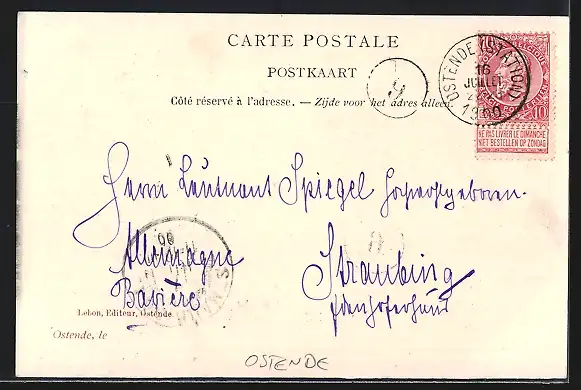 CARTE POSTALE
POSTKAART
Côté réservé à l'adresse. — Zijde voor het adres alleen.
9
OSTENDE (STATION)
16
JUILLET
1900
10
NE PAS LIVRER LE DIMANCHE
NIET BESTELLEN OP ZONDAG
Herrn Leutnant Spiegel Hochwohlgeboren.
Allemagne
Straubing
Bavière
Lebon, Editeur, Ostende.
Ostende, le
OSTENDE